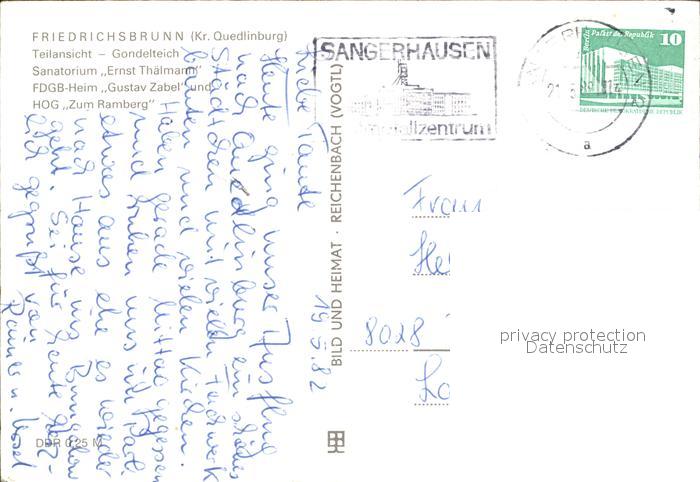 FRIEDRICHSBRUNN (Kr. Quedlinburg)
Teilansicht – Gondelteich
Sanatorium „Ernst Thälmann"
FDGB-Heim „Gustav Zabel" und
HOG „Zum Ramberg"
SANGERHAUSEN
10
Berlin, Palast der Republik
DEUTSCHE DEMOKRATISCHE REPUBLIK
a
19.5.82
Liebe Tante
Heute ging unser Ausflug
nach Quedlinburg ein schönes
Städtchen mit vielen Fachwerk
bauten und vielen Kirchen.
Haben gerade Mittag gegessen
und ruhen uns im Park
etwas aus ehe es wieder
nach Hause ins
geht. Sei für heute herz-
lich gegrüßt von
Rainer u.
BILD UND HEIMAT · REICHENBACH (VOGTL)
Frau
He
8028
Lo
privacy protection
Datenschutz
DDR 0,25 M